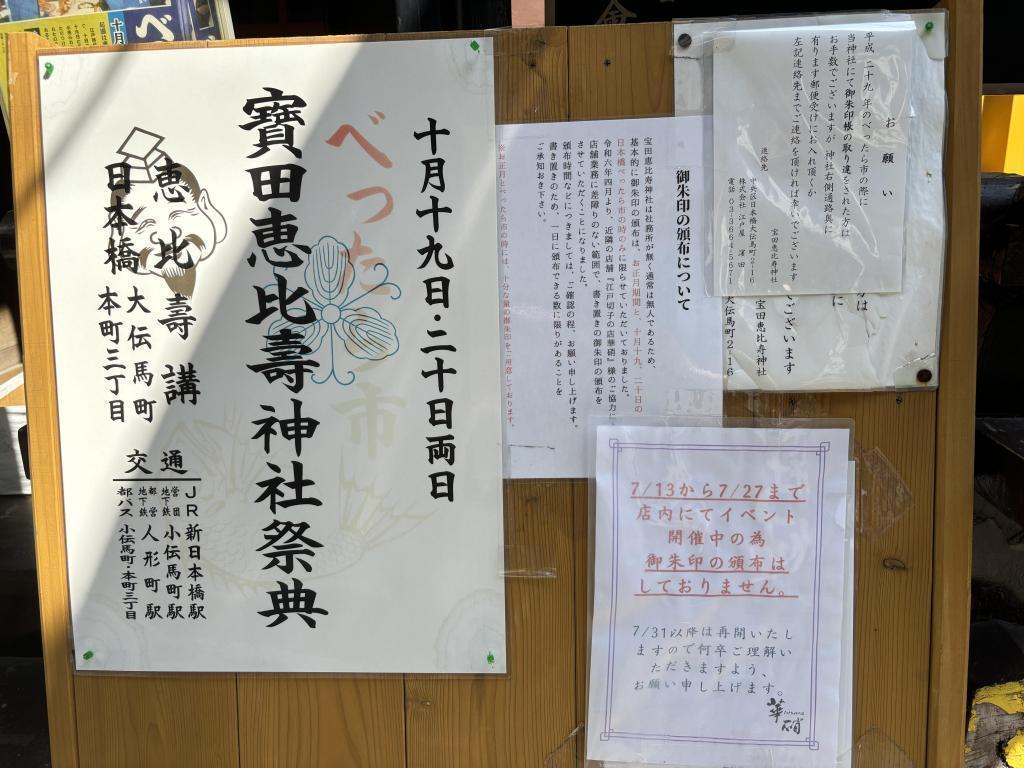 十月十九日・二十日両日
べったら市
寶田恵比壽神社祭典
恵比壽講
日本橋 大伝馬町
本町三丁目
交通
JR新日本橋駅
営団地下鉄 小伝馬町駅
都営地下鉄 人形町駅
都バス 小伝馬町・本町三丁目
御朱印の頒布について
宝田恵比寿神社は社務所が無く通常は無人であるため、
基本的に御朱印の頒布は、お正月期間と、十月十九、二十日の
日本橋べったら市の時のみに限らせていただいておりました。
令和六年四月より、近隣の店舗『江戸切子の店華硝』様のご協力に
店舗業務に差障りのない範囲で、書き置きの御朱印の頒布を
させていただくことになりました。
頒布時間などにつきましては、ご確認の程、お願い申し上げます。
書き置きのため、一日に頒布できる数に限りがあることを
ご承知おき下さい。
※お正月とべったら市の時には、十分な量の御朱印をご用意しております。
お願い
平成二十九年のべったら市の際に
当神社にて御朱印帳の取り違をされた方は
お手数でございますが 神社右側通路奥に
有ります郵便受けにお入れ頂くか
左記連絡先までご連絡を頂ければ幸いでございます
宝田恵比寿神社
連絡先
中央区日本橋大伝馬町2-16
株式会社 江戸屋 濱田
電話 03-3664-5671
方は
に
ございます
宝田恵比寿神社
大伝馬町2-16
7/13から7/27まで
店内にてイベント
開催中の為
御朱印の頒布は
しておりません。
7/31以降は再開いたし
ますので何卒ご理解い
ただきますよう、
お願い申し上げます。
華硝